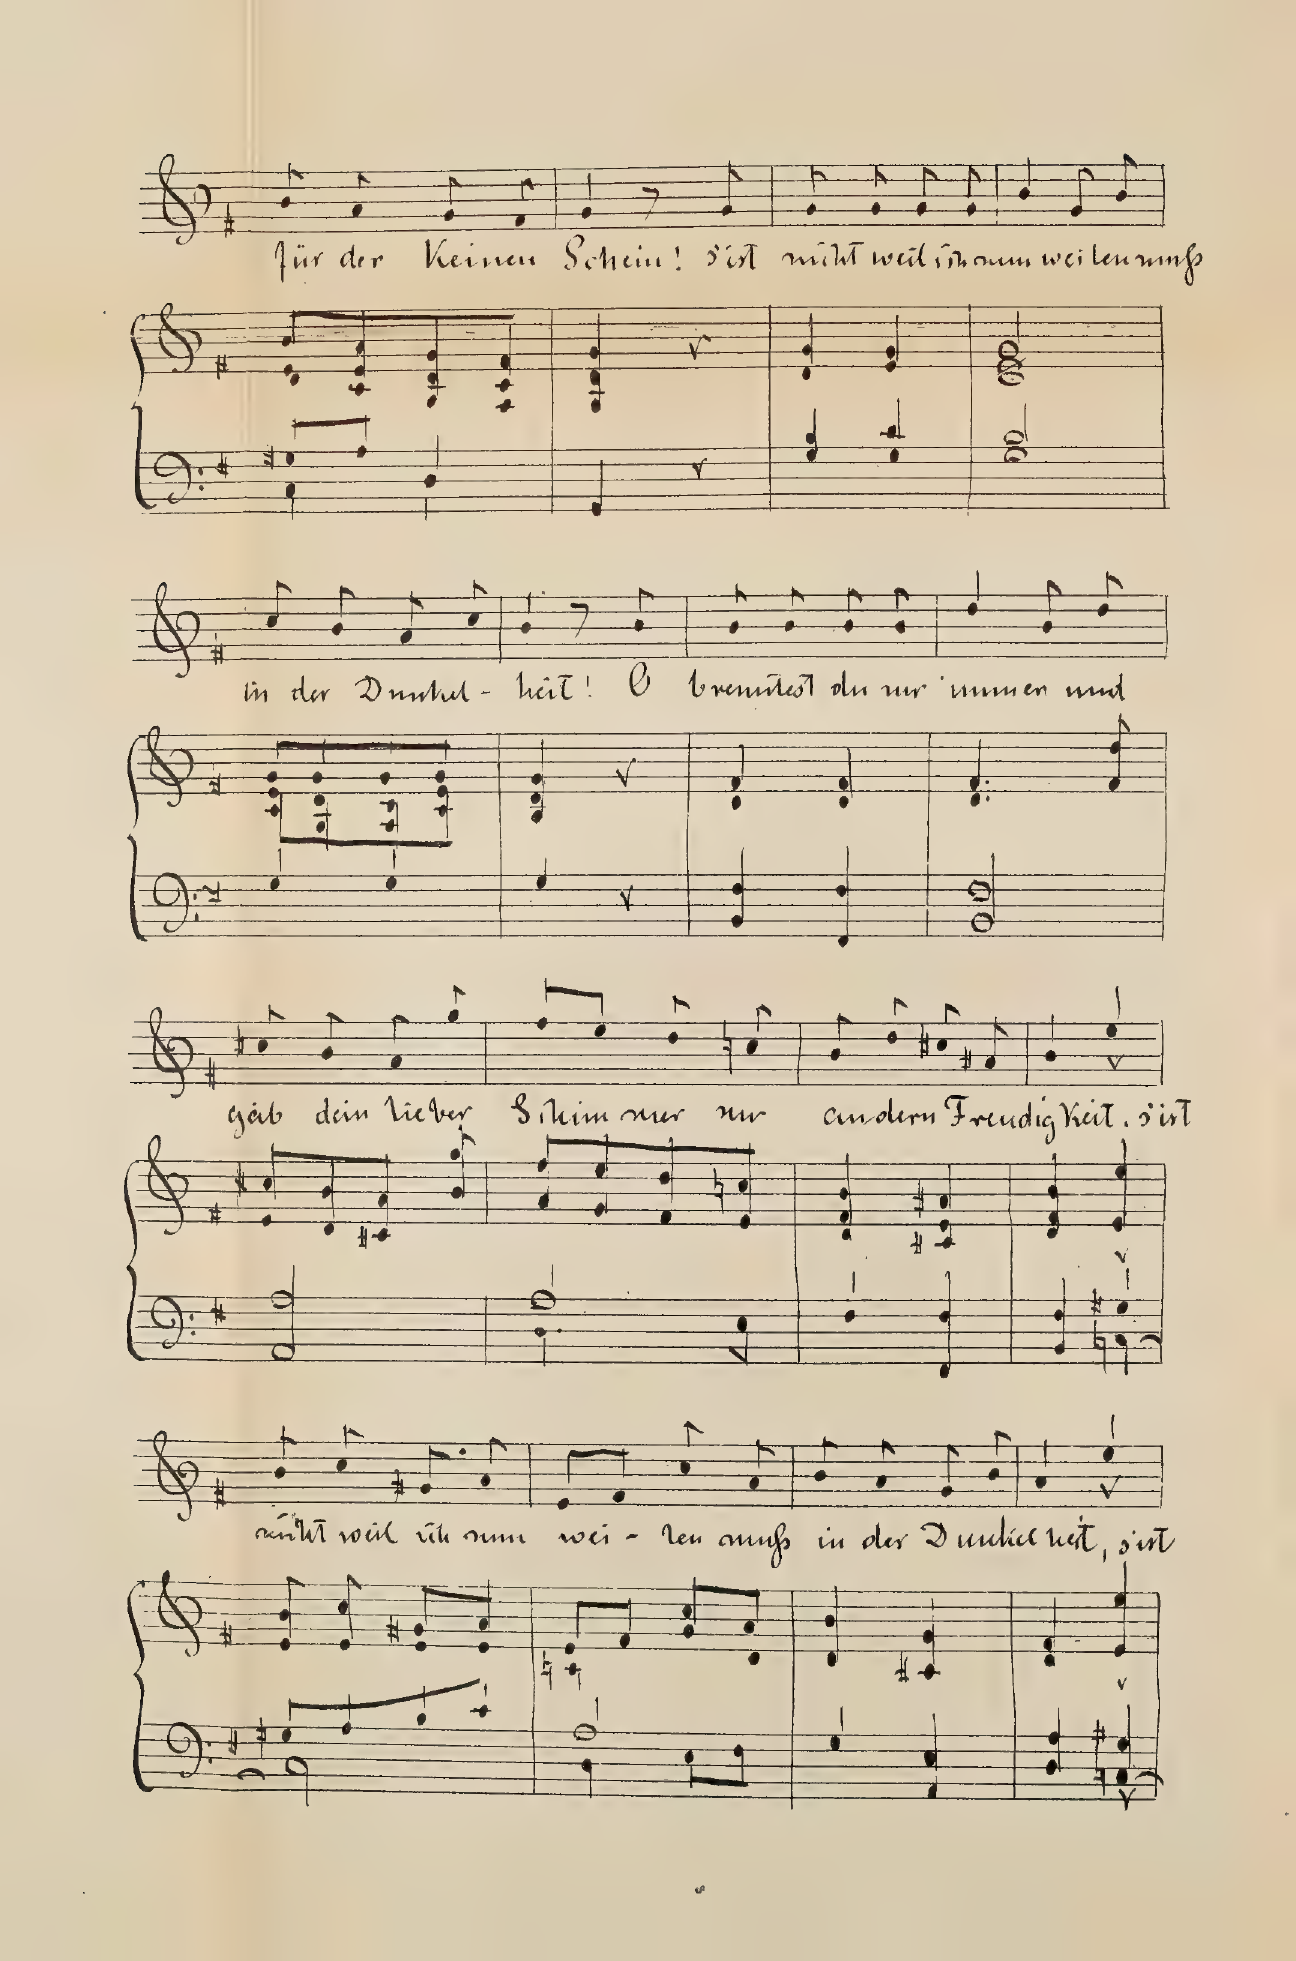 für der Keinen Schein! s'ist nicht weil ich nun weilen muß
in der Dunkel - heit! O brenntest du nur immer und
gäb dein lieber Schimmer nur andern Freudigkeit. s'ist
nicht weil ich nun wei - len muß in der Dunkelheit, s'ist